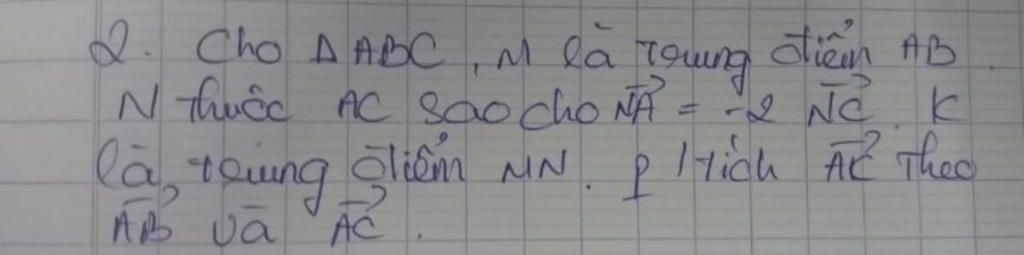 2. Cho Δ ABC, M là trung điểm AB.
N thuộc AC sao cho \overrightarrow{NA} = -2 \overrightarrow{NC}. K
là trung điểm MN. p/tích \overrightarrow{AK} theo
\overrightarrow{AB} và \overrightarrow{AC}.